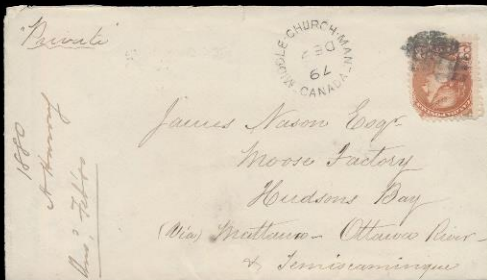 "Private"
MIDDLE-CHURCH-MAN-
DE
79
CANADA
James Nason Esqr
Moose Factory
Hudsons Bay
(Via) Mattawa - Ottawa River -
& Temiscamingue
1880